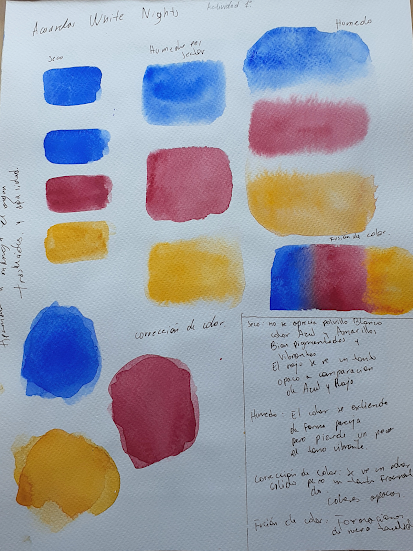 Acuarelas White Nights
Actividad 1
Seco
Humedo por
Humedo
Fusión de color
corrección de color
Seco: no se aprecia polvillo Blanco
color Azul y Amarillo
Bien pigmentados y
Vibrantes
El rojo se ve un tanto
opaco a comparación
de Azul y Rojo
Humedo: El color se extiende
de forma pareja
pero pierde un poco
el tono vibrante.
corrección de color: Se ve un color
solido pero un tanto
colores opacos.
Fusión de color: Formaciones
de nuevo